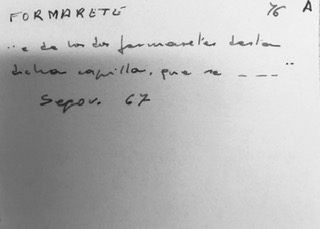 FORMARETE 76 A
"e de los dos formaretes desta
dicha capilla, que se _ _ _"
Segov. 67